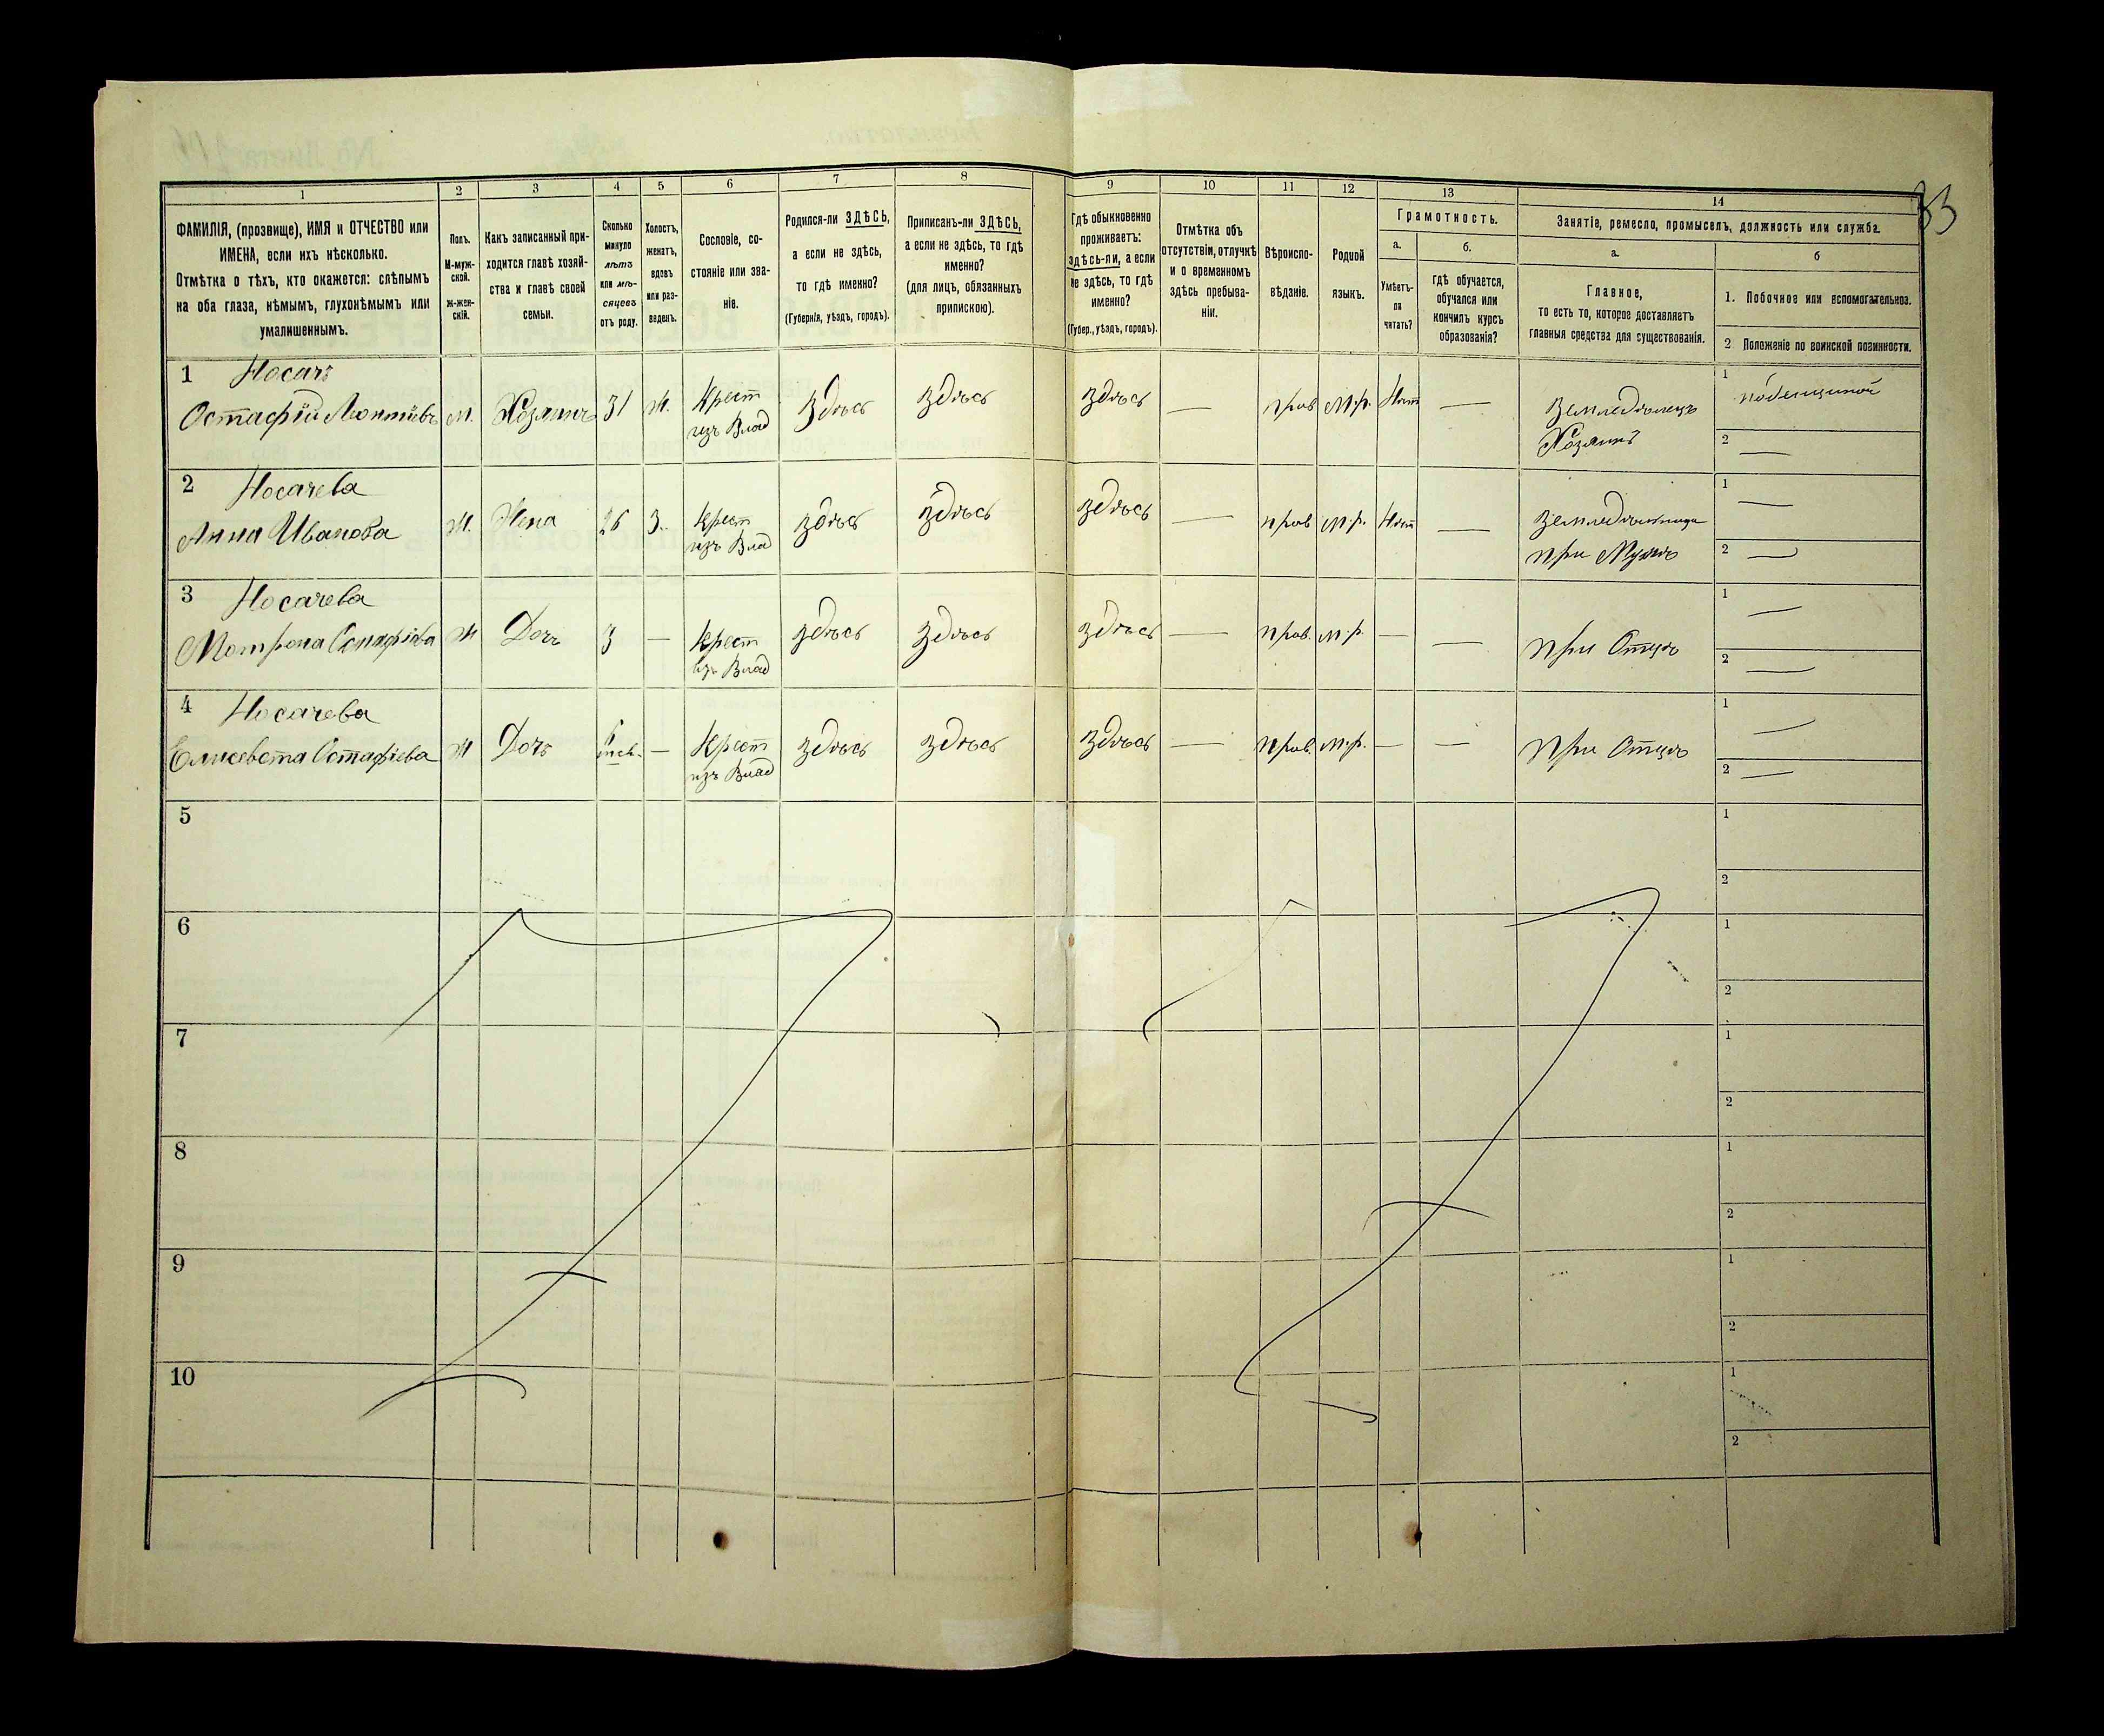 33
1 2 3 4 5 6 7 8 9 10 11 12 13 14
ФАМИЛІЯ, (прозвище), ИМЯ и ОТЧЕСТВО или
ИМЕНА, если ихъ нѣсколько.
Отмѣтка о тѣхъ, кто окажется: слѣпымъ
на оба глаза, нѣмымъ, глухонѣмымъ или
умалишеннымъ.
Полъ.
М-муж-
ской.
ж-жен-
скій.
Какъ записанный при-
ходится главѣ хозяй-
ства и главѣ своей
семьи.
Сколько
минуло
лѣтъ
или мѣ-
сяцевъ
отъ роду.
Холостъ,
женатъ,
вдовъ
или раз-
веденъ.
Сословіе, со-
стояніе или зва-
ніе.
Родился-ли ЗДѢСЬ,
а если не здѣсь,
то гдѣ именно?
(Губернія, уѣздъ, городъ).
Приписанъ-ли ЗДѢСЬ,
а если не здѣсь, то гдѣ
именно?
(для лицъ, обязанныхъ
припискою).
Гдѣ обыкновенно
проживаетъ:
здѣсь-ли, а если
не здѣсь, то гдѣ
именно?
(Губер., уѣздъ, городъ).
Отмѣтка объ
отсутствіи, отлучкѣ
и о временномъ
здѣсь пребыва-
ніи.
Вѣроиспо-
вѣданіе.
Родной
языкъ.
Грамотность.
а.
Умѣетъ-
ли
читать?
б.
гдѣ обучается,
обучался или
кончилъ курсъ
образованія?
Занятіе, ремесло, промыселъ, должность или служба.
а.
Главное,
то есть то, которое доставляетъ
главныя средства для существованія.
б
1. Побочное или вспомогательное.
2 Положеніе по воинской повинности.
1 Носачъ
Остафій Леонтіевъ м. Хозяинъ 31 ж. Крест здѣсь здѣсь здѣсь — прав м.р. Нѣт — Земледѣлецъ 1 поденщиной
изъ Влад Хозяинъ 2 —
2 Носачева
Анна Иванова ж. Жена 26 з. Крест здѣсь здѣсь здѣсь — прав м.р. Нѣт — 1 —
изъ Влад при Мужѣ 2 —
3 Носачева
Матрона Остафіева ж Дочь 3 — Крест здѣсь здѣсь здѣсь — прав. м.р. — — при Отцѣ 1 —
изъ Влад 2 —
4 Носачева
Елисавета Остафіева ж Дочь — Крест здѣсь здѣсь здѣсь — прав. м.р. — — при Отцѣ 1 —
изъ Влад 2 —
5 1
2
6 1
2
7 1
2
8 1
2
9 1
2
10 1
2